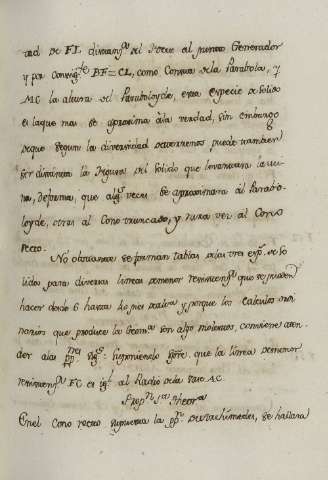 tad de FI distanc.ª del Focus al punto Generador
y por Consig.te BF=CL, como Consta de la Parabola, y
AC la altura del Paraboloyde, esta especie de solido
es la que mas se aproxima à la verdad, sin embargo
de que segun la diversidad de terrenos puede tambien
ser distinta la figura del solido que levantara la mi-
na, de forma, que alg.s veces se aproximara al Parabo-
loyde, otras al Cono truncado, y rara vez al Cono
recto.
No obstante se forman tablas de las tres esp.s de So
lidos para diversas lineas de menor resistenc.ª que se pueden
hacer desde 6 hasta 40 pies de altura y porque los Calculos
que produce la Geom.ª son algo molestos, conviene aten
der a las sig.s: suponiendo que la linea de menor
resistenc.ª FC es ig.l al Radio de la vase AC.
Prop.n 1.ª Theor.ª
En el Cono recto supuesta la pp.n de Archimedes, se hallara